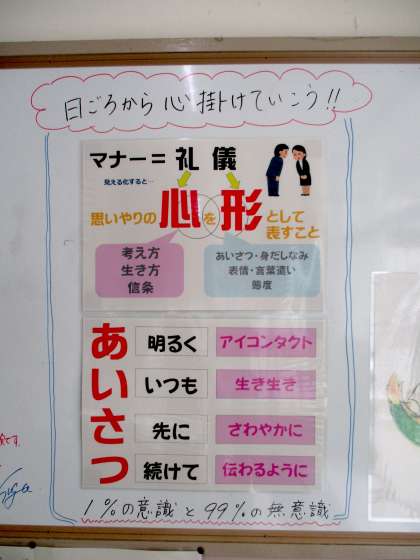 日ごろから心掛けていこう!!
マナー＝礼儀
見える化すると…
思いやりの心を形として
表すこと
考え方
生き方
信条
あいさつ・身だしなみ
表情・言葉遣い
態度
あいさつ
明るく アイコンタクト
いつも 生き生き
先に さわやかに
続けて 伝わるように
1%の意識と99%の無意識
です。